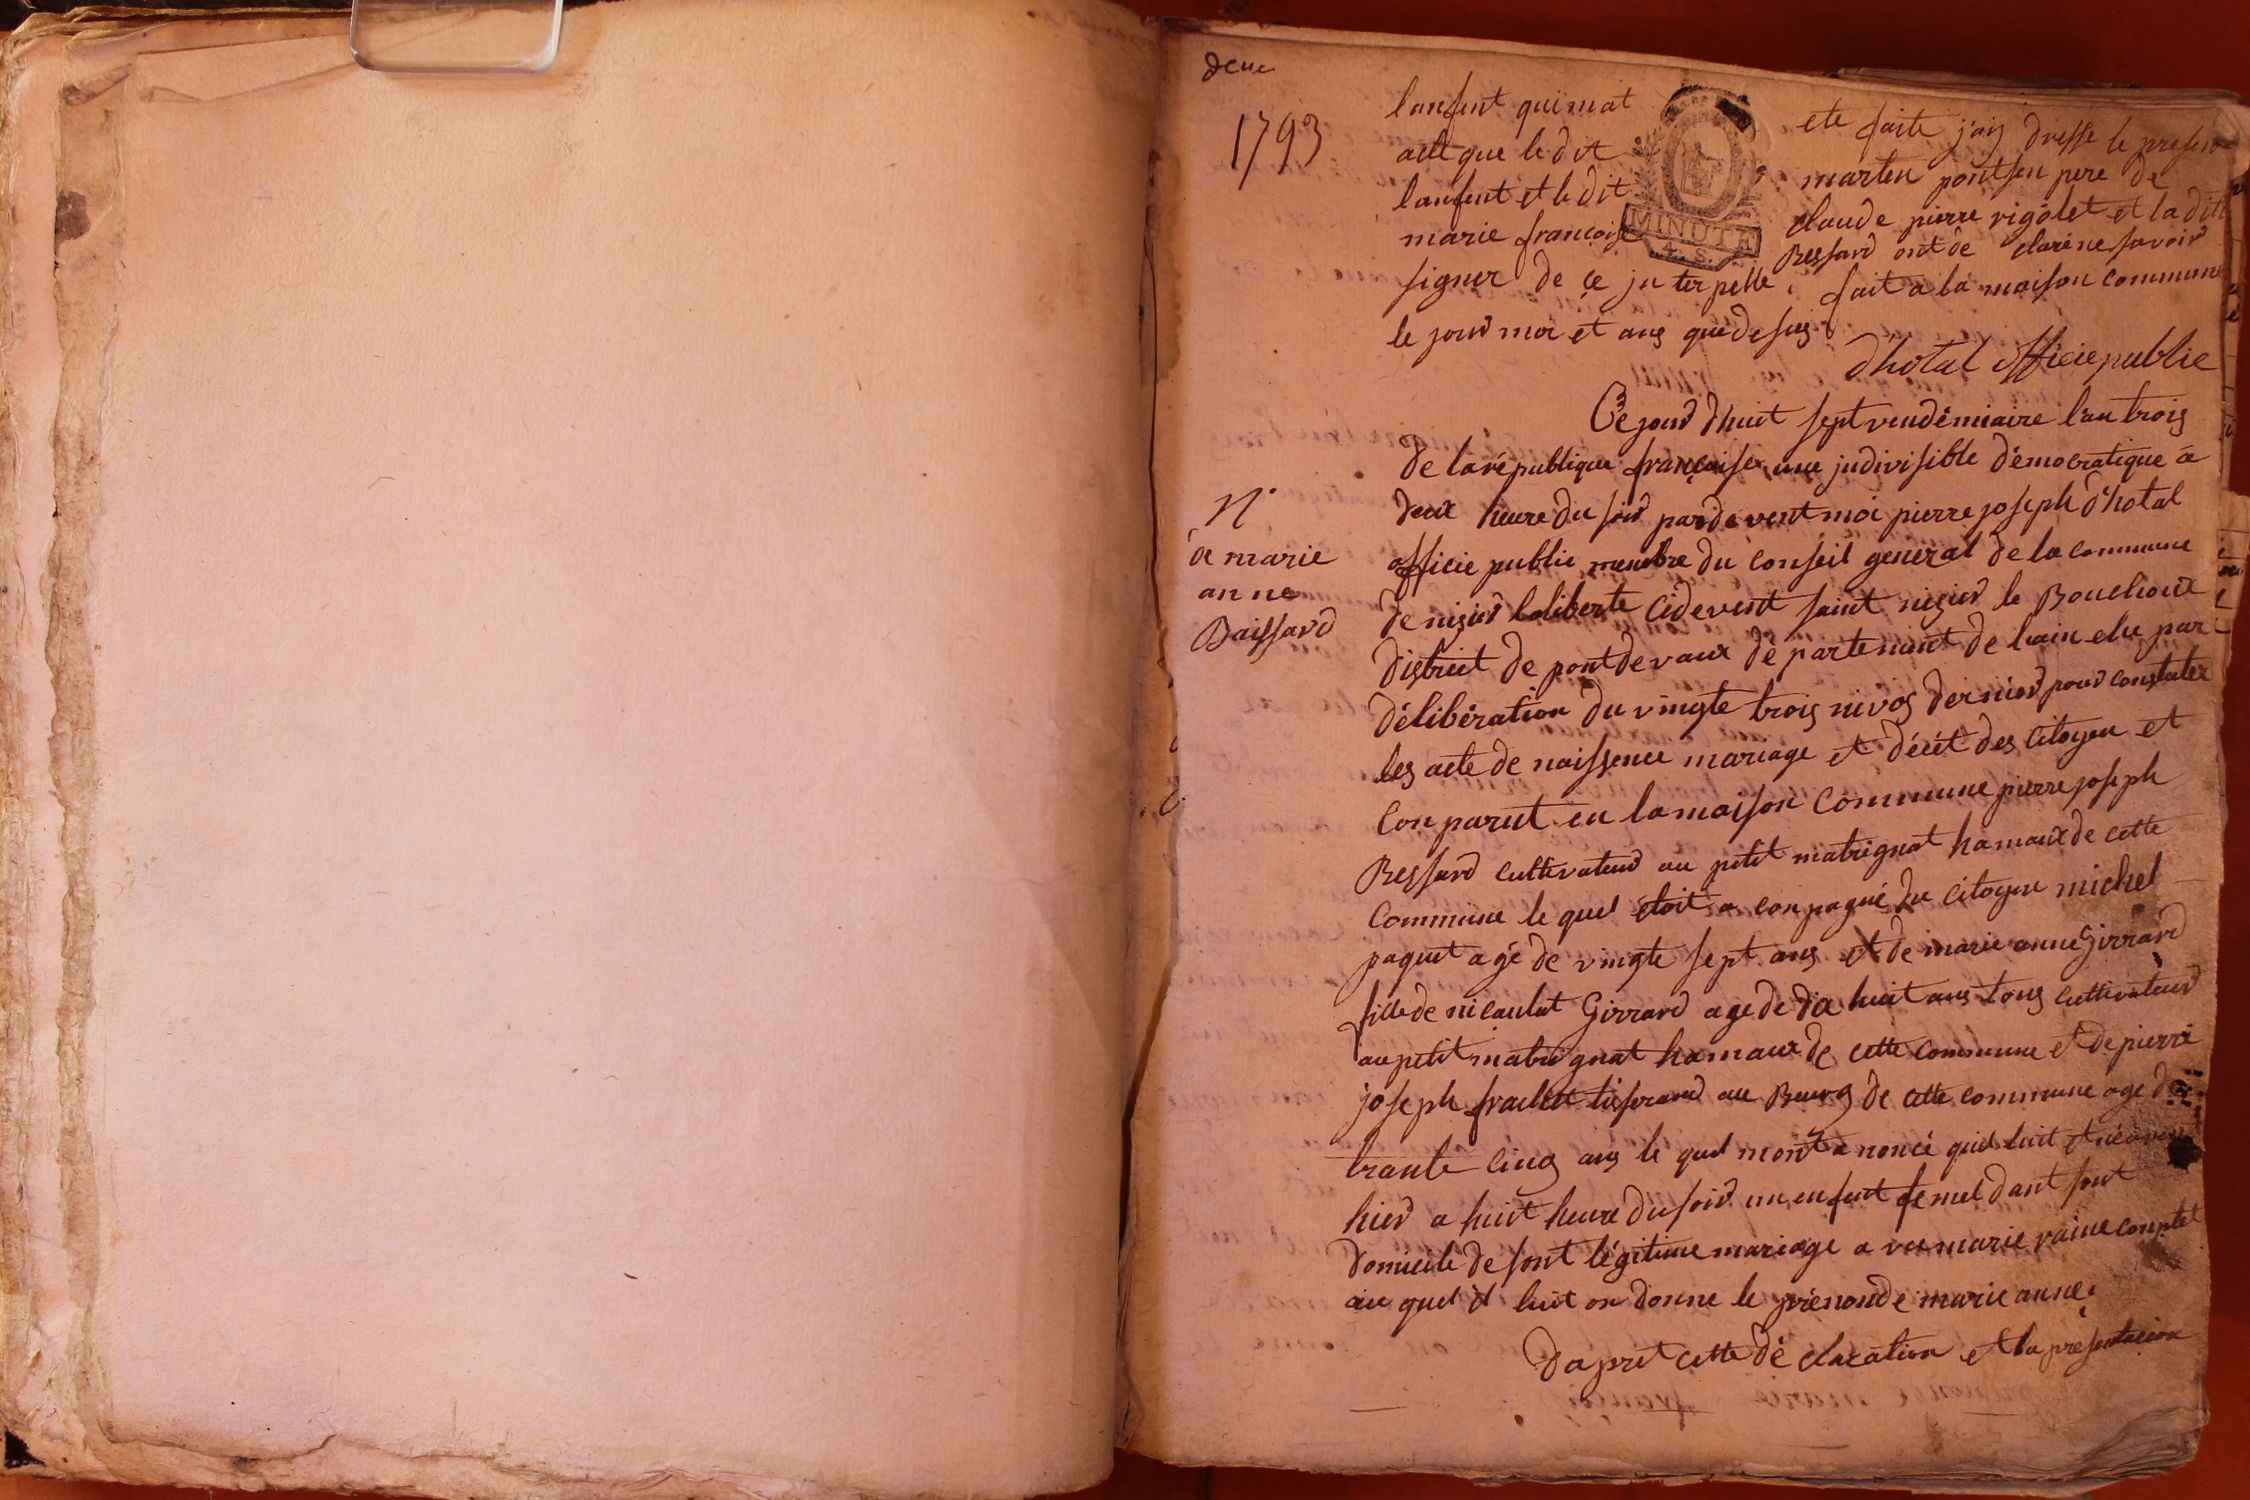 deuc
1793
lanfent quimat ete faite j'ay dresse le presen
acte que le dit marten pontsen pere de
lanfent et le dit claude pierre rigolet et la dit
marie françoise Ressard ont de clarè ne savoir
MINUTE
4. S.
signer de ce in ter pelle, fait a la maison commune
le jour moi et ans que desus
d'hotal officie publie
Ce jour dhuit sept vendémiaire l'an trois
de la république françoise une indivisible démocratique à
deux heure du soir par devent moi pierre joseph d'hotal
officie publie membre du conseil general de la commune
de nizier laliberte cidevent saint nizier le Bouchoux
district de pontdevaux departement de lain elu par
délibération du vingte trois nivos dernier pour constater
les acte de naissence mariage et décét des citoyen et
conparut en la maison commune pierre joseph
Ressard cultivateur au petit matrignat hamaux de cette
commune le quel etoit a conpagné du citoyen michel
paquet agé de vingte sept ans et de marie anne Girrard
fille de nicaulat Girrard age de dix huit ans tous cultivateur
au petit matrignat hamaux de cette commune et de pierre
joseph frachet tisserand au Bourg de cette commune age de
trante cinq ans le quel mont a noncé quil luit et né
hier a huit heure du soir un enfent femel dant sont
domicile de sont légitime mariage a vec marie raine conptet
au quel il luit on donne le prénon de marie anne
N.
de marie
anne
Baissard
daprèt cette dé claration et la présentation